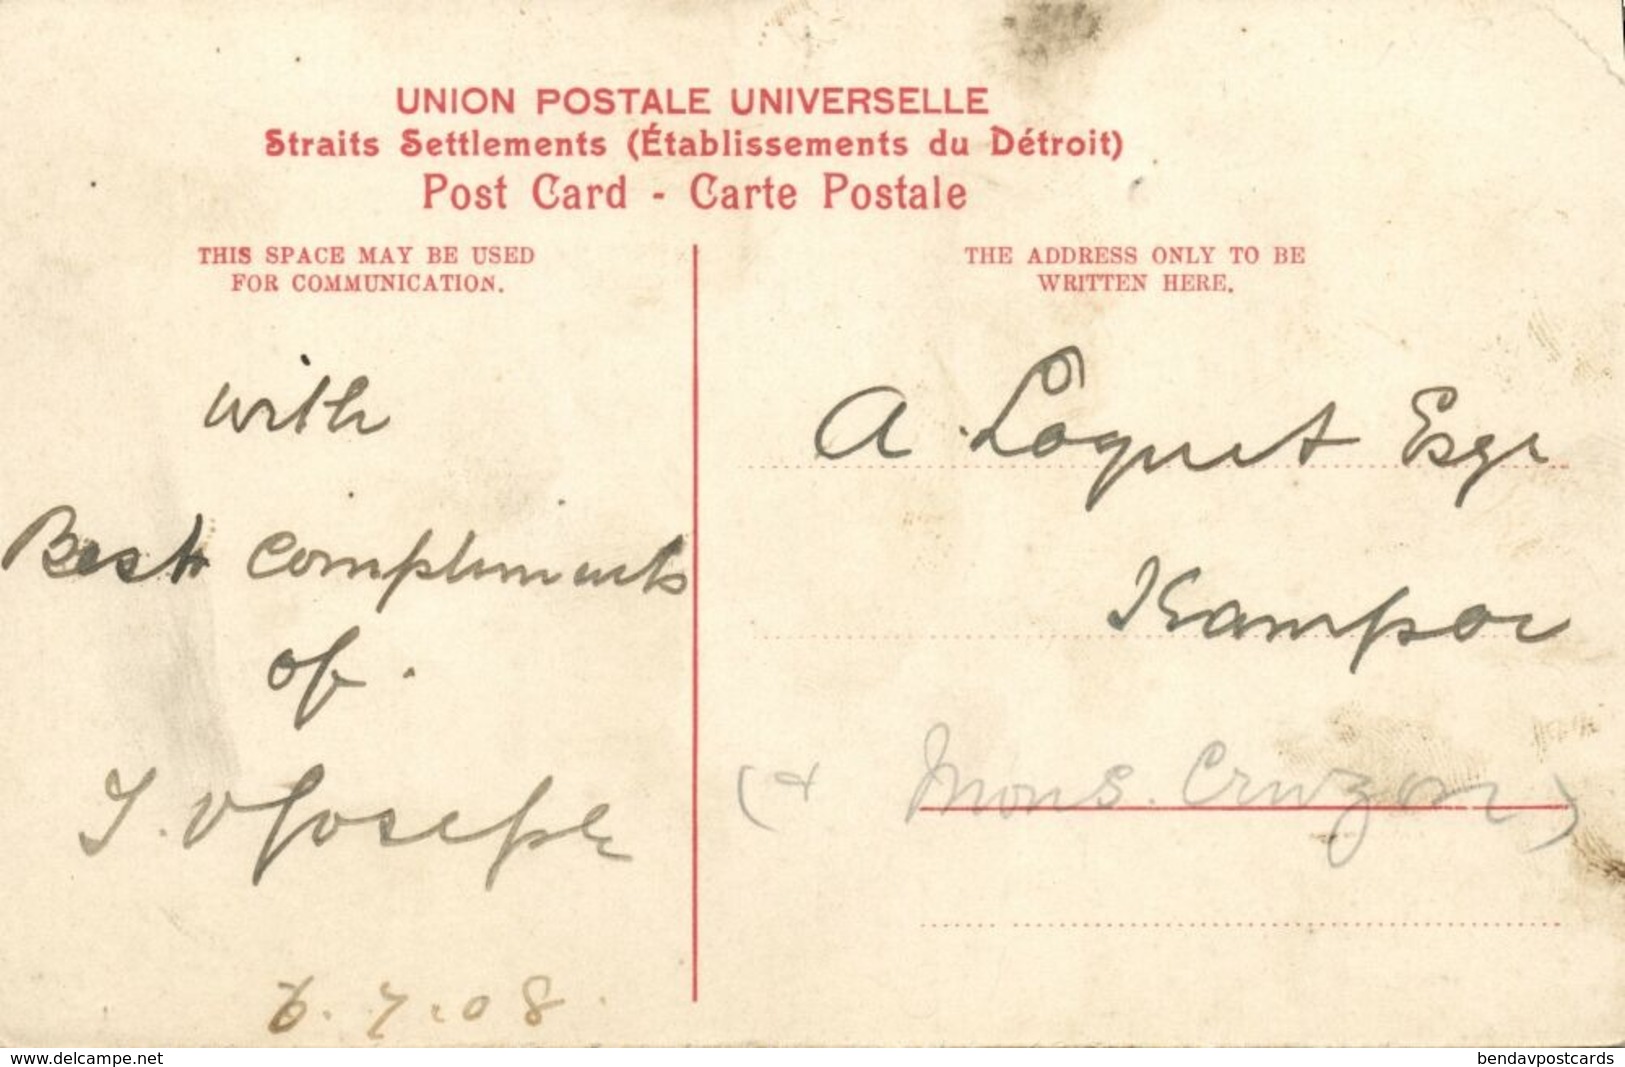 UNION POSTALE UNIVERSELLE
Straits Settlements (Établissements du Détroit)
Post Card - Carte Postale
THIS SPACE MAY BE USED
FOR COMMUNICATION.
with
Best compliments
of.
J. V Joseph
6.7.08.
THE ADDRESS ONLY TO BE
WRITTEN HERE.
A. Loquet Esqr
Kampar
(& Mons. Cruzon)
www.delcampe.net
bendavpostcards